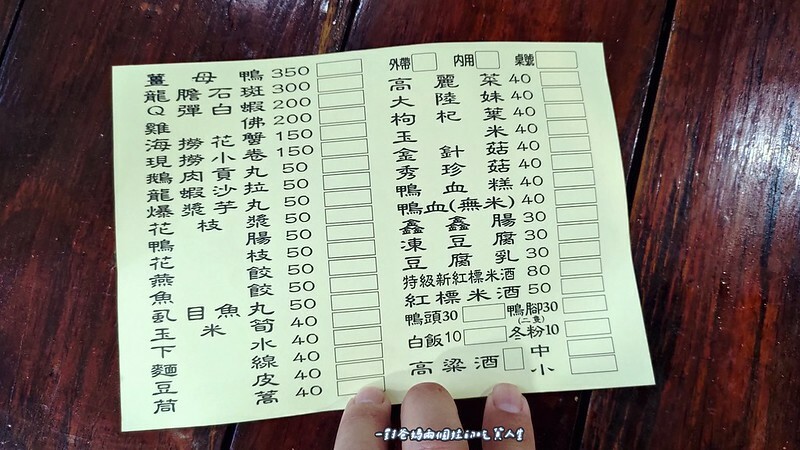 薑母鴨 350
龍膽石斑 300
Q彈白蝦 200
雞佛 200
海撈花蟹 150
現撈小卷 150
鵝肉貢丸 50
龍蝦沙拉 50
爆漿芋丸 50
花枝漿 50
鴨腸 50
花枝 50
燕餃 50
魚餃 50
虱目魚丸 50
玉米筍 40
下水 40
麵線 40
豆皮 40
茼蒿 40
外帶 內用 桌號
高麗菜 40
大陸妹 40
枸杞葉 40
玉米 40
金針菇 40
秀珍菇 40
鴨血糕 40
鴨血(無米) 40
鑫鑫腸 30
凍豆腐 30
豆腐乳 30
特級新紅標米酒 80
紅標米酒 50
鴨頭30 鴨腳30
(二隻)
白飯10 冬粉10
高粱酒 中
小
一對爸媽兩個娃的吃貨人生